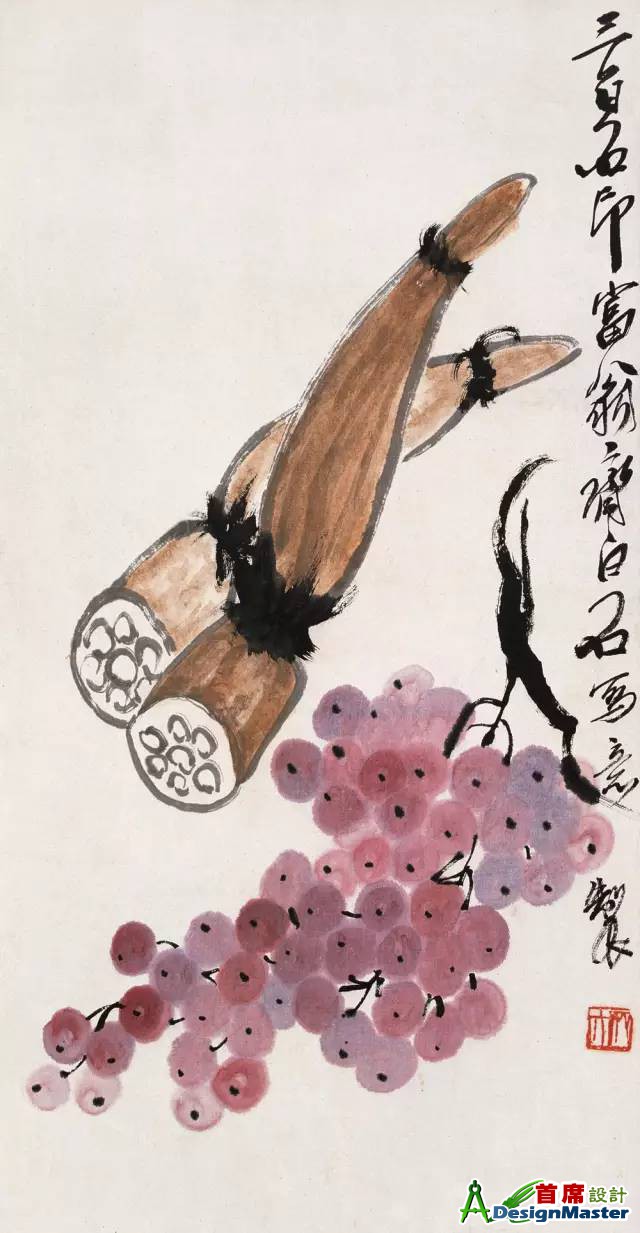 三百石印富翁齊白石寫意製
首席設計
DesignMaster